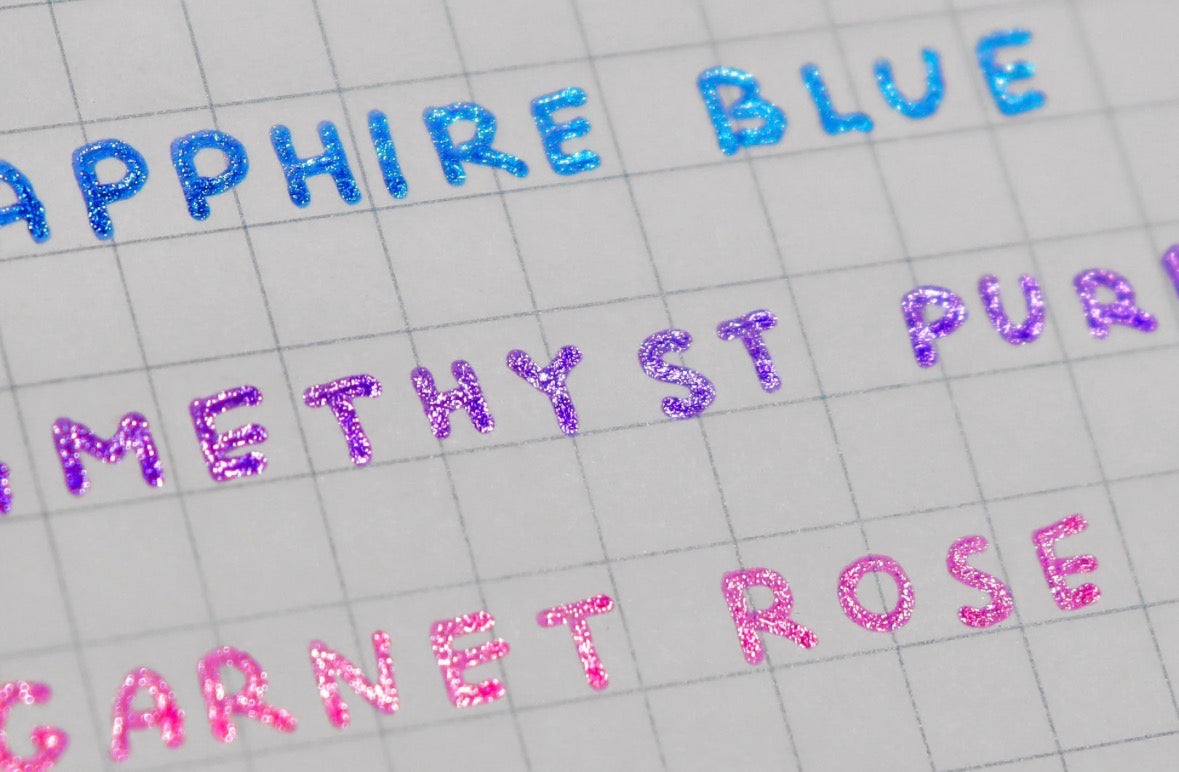 SAPPHIRE BLUE
AMETHYST PUR
GARNET ROSE